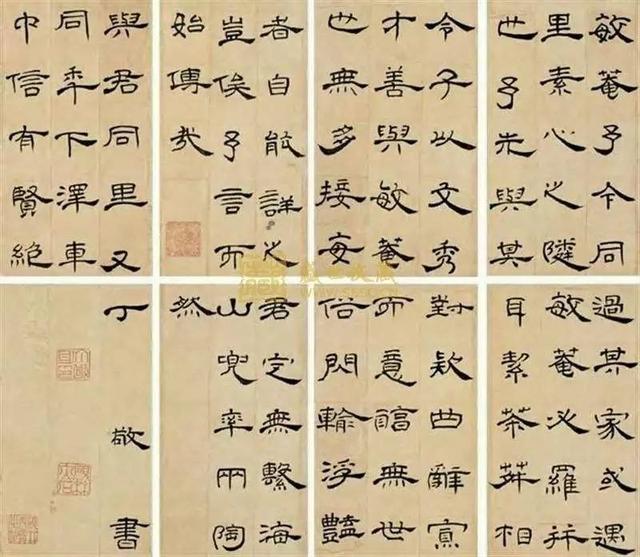 敏菴予今同
里素心之隣
世予先與其
令子以文秀
才善與敏菴
世無多接每
者自能詳之
豈俟予言而
始傳哉
與君同里又
同年下澤車
巾信有賢絕
過其家或遇
敏菴必羅并
耳絜茶荈相
對款曲辭寡
而意無世
俗閃輸浮豔
君定無繫海
山兜率兩陶
然
丁敬書